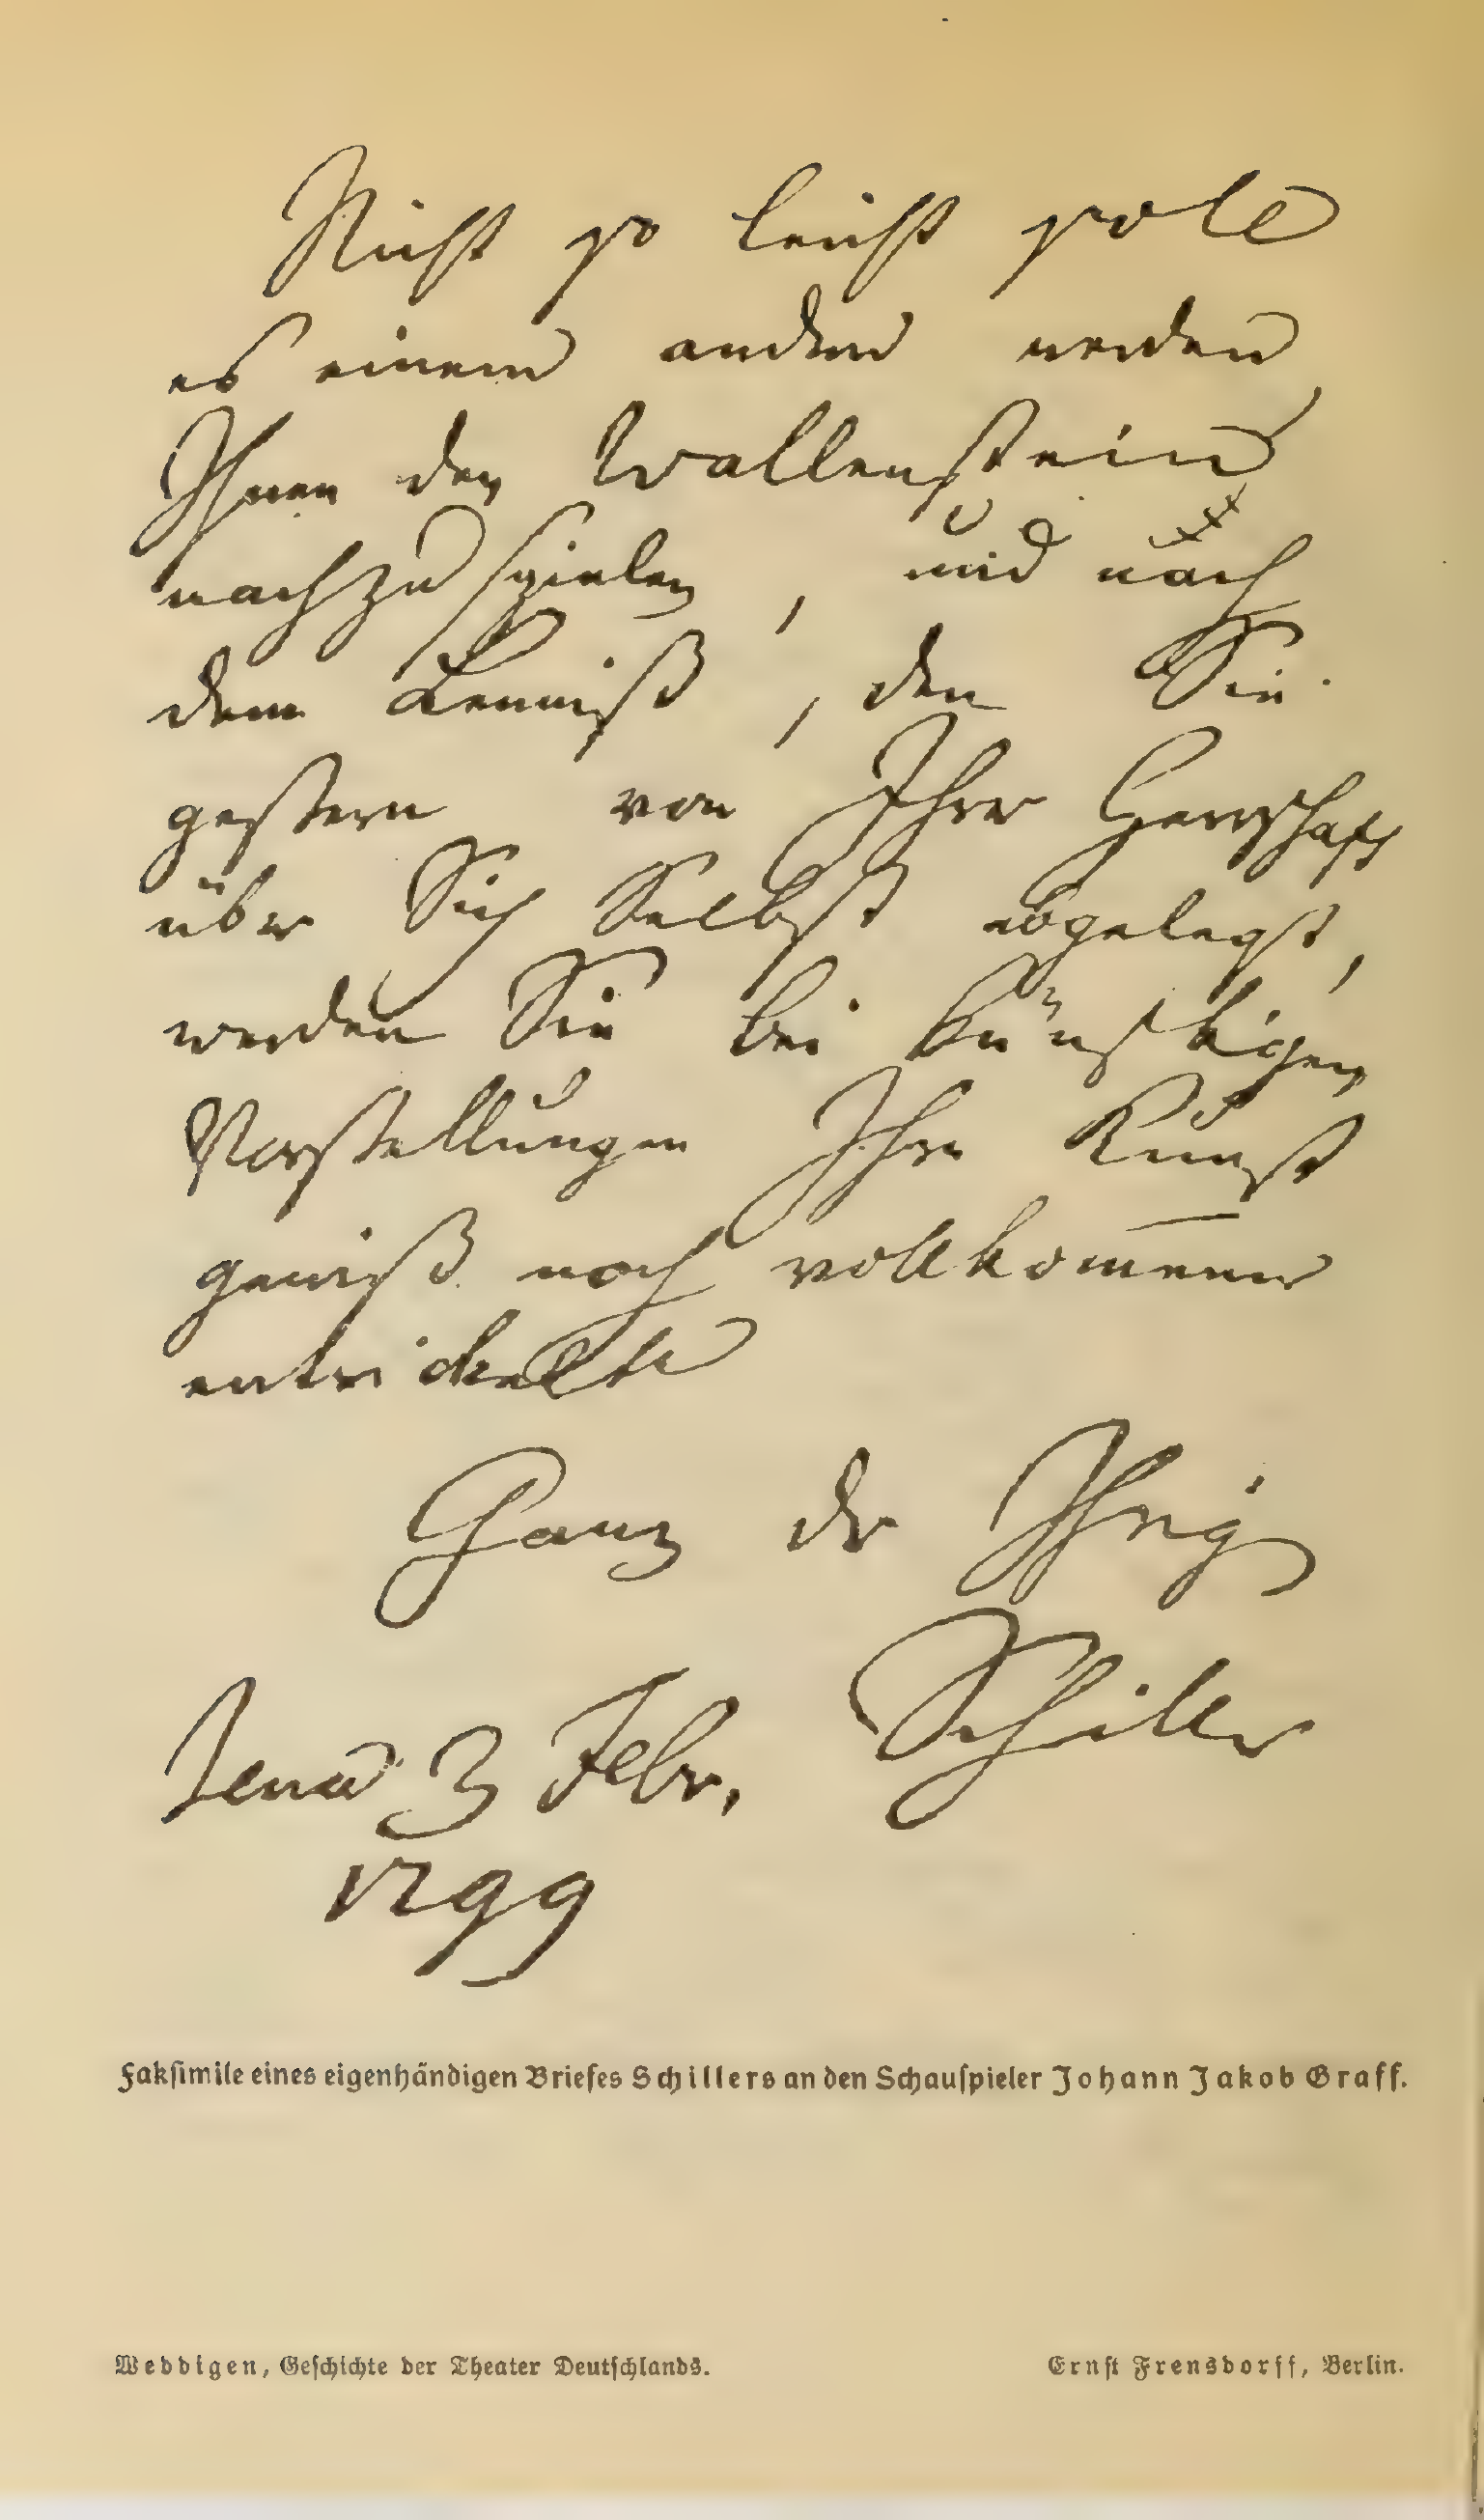 Nicht so leicht sole
es einem andern werden
Ihnen den Wallenstein
nachzuspielen, und nach
dem Beweiß, den Sie
gestern von Ihrer Herrschaft
über Sich Selbst abgelegt,
werden Sie bei künftigen
Vorstellungen Ihre Kunst
gewiß noch vollkom̅ener
entwickeln
Ganz der Ihrige
Schiller
Jena 3 Febr.
1799
Faksimile eines eigenhändigen Briefes Schillers an den Schauspieler Johann Jakob Graff.
Weddigen, Geschichte der Theater Deutschlands.
Ernst Frensdorff, Berlin.